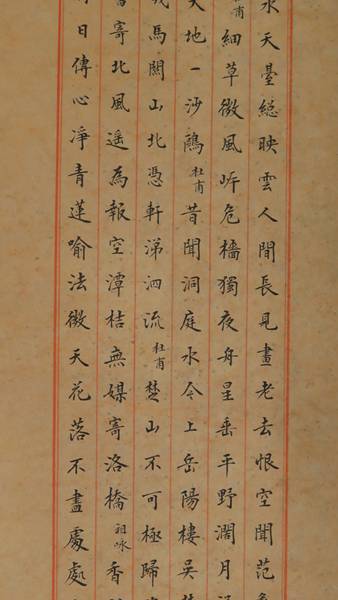 水天臺總映雲人間長見畫老去恨空聞范
甫細草微風岸危檣獨夜舟星垂平野闊月
天地一沙鷗杜甫昔聞洞庭水今上岳陽樓吳
戎馬關山北憑軒涕泗流杜甫楚山不可極歸
書寄北風遙為報空潭桔無媒寄洛橋祖咏香
日傳心淨青蓮喻法微天花落不盡處處